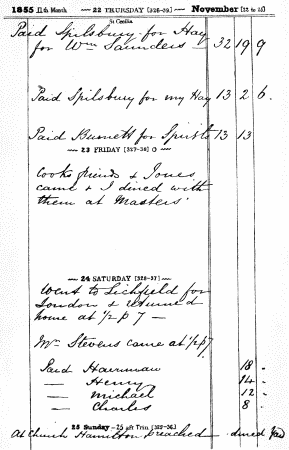 1855 11th Month — 22 THURSDAY [326-39] — November [32 to 33]
St Cecilia
Paid Spilsbury for Hay
for Wm Saunders — 32 19 9
Paid Spilsbury for my Hay 13 2 6.
Paid Burnett for Spirits 13 13
— 23 FRIDAY [327-38] O —
Cooks friends & Jones
came & I dined with
them at Masters'
— 24 SATURDAY [328-37] —
Went to Lichfield for
London & returned
home at ½ p 7 —
Mr Stevens came at ½ p 7
Paid Harriman 18 -
— Henry 14 -
— Michael 12 -
— Charles 8 -
25 Sunday—25 aft Trin. [329-36]
At Church Hamilton preached — dined